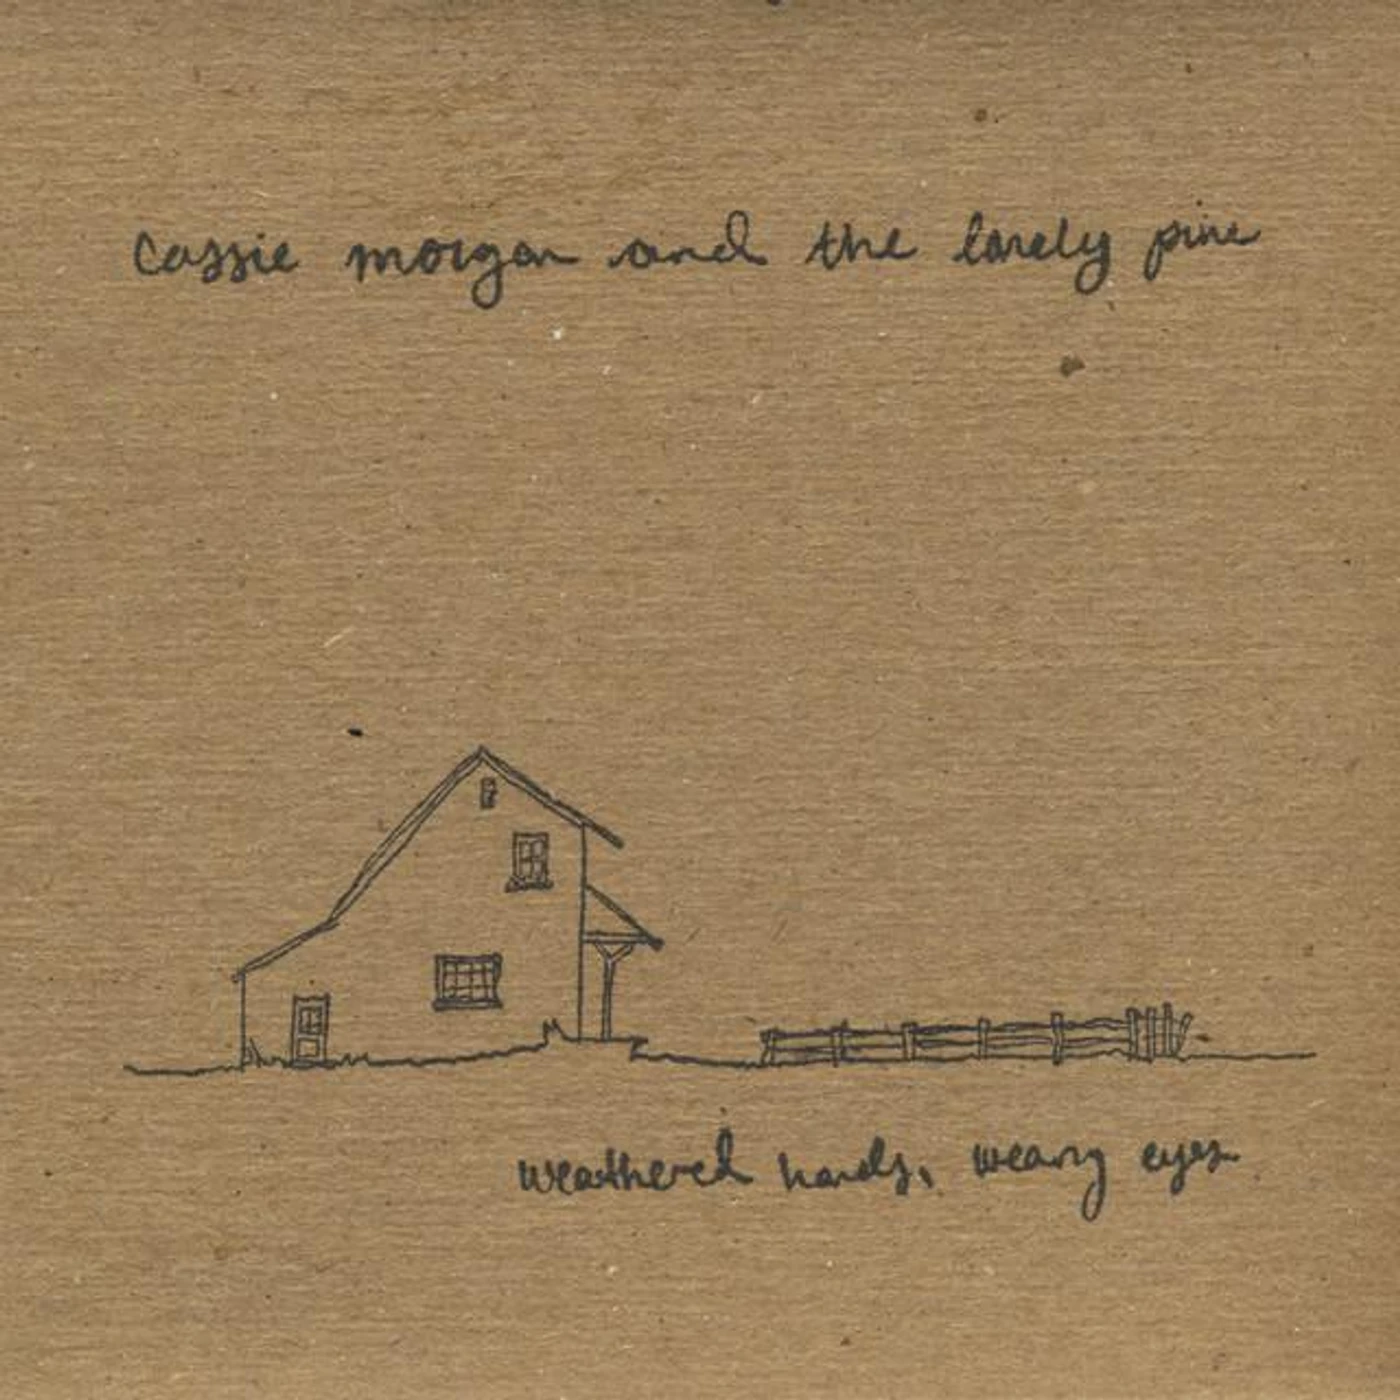 cassie morgan and the lonely pine
weathered hands, weary eyes